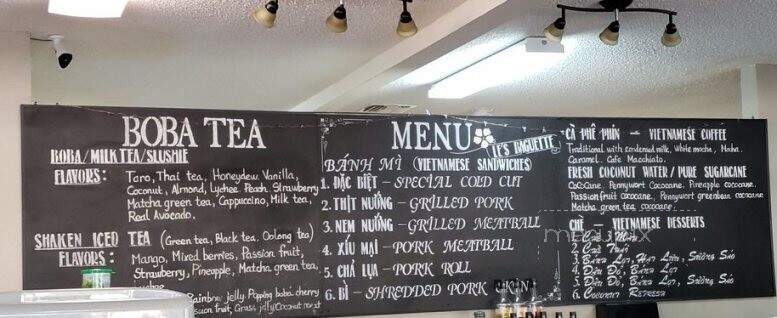 BOBA TEA
BOBA/MILK TEA/SLUSHIE
FLAVORS: Taro, Thai tea, Honeydew, Vanilla,
Coconut, Almond, Lychee, Peach, Strawberry
Matcha green tea, Cappuccino, Milk tea,
Real Avocado.
SHAKEN ICED TEA (Green tea, Black tea, Oolong tea)
FLAVORS: Mango, Mixed berries, Passion fruit,
Strawberry, Pineapple, Matcha green tea,
Rainbow jelly, Popping boba cherry
fruit, Grass jelly, Coconut
MENU
LE'S BAGUETTE
BÁNH MÌ (VIETNAMESE SANDWICHES)
1. ĐẶC BIỆT - SPECIAL COLD CUT
2. THỊT NƯỚNG - GRILLED PORK
3. NEM NƯỚNG - GRILLED MEATBALL
4. XÍU MẠI - PORK MEATBALL
5. CHẢ LỤA - PORK ROLL
6. BÌ - SHREDDED PORK SKIN
CÀ PHÊ PHIN - VIETNAMESE COFFEE
Traditional with condensed milk, White mocha, Mocha,
Caramel, Cafe Macchiato.
FRESH COCONUT WATER / PURE SUGARCANE
CocoCane, Pennywort Cococane, Pineapple cococane,
Passion fruit cococane, Pennywort greenbean cococane
Matcha green tea cococane
CHÈ - VIETNAMESE DESSERTS
1. CHÈ 3 MÀU
2. CHÈ THÁI
3. BÁNH LỌT, HẠT LỰU, SƯƠNG SÁO
4. ĐẬU ĐỎ, BÁNH LỌT
5. ĐẬU ĐỎ, BÁNH LỌT, SƯƠNG SÁO
6. COCONUT REFRESH